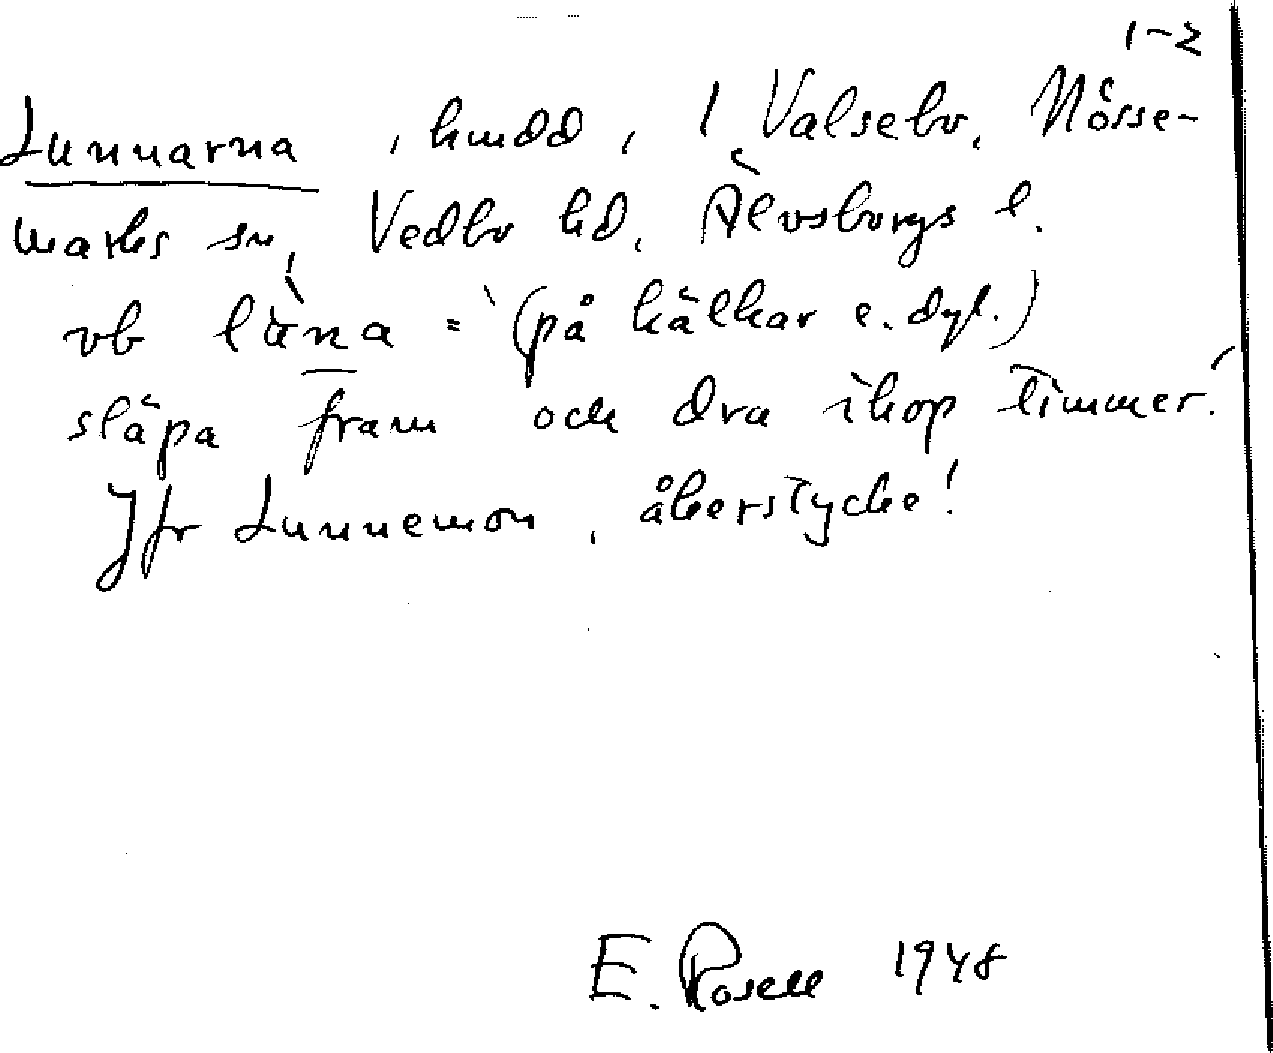 1-2
Lunnarna, hmdd, 1 Valsebo, Nösse-
marks sn, Vedbo hd, Älvsborgs l.
vb låna = '(på kälkar e. dyl.)
släpa fram och dra ihop timmer.'
Jfr Lunnemon, åkerstycke!
E. Rosell 1948